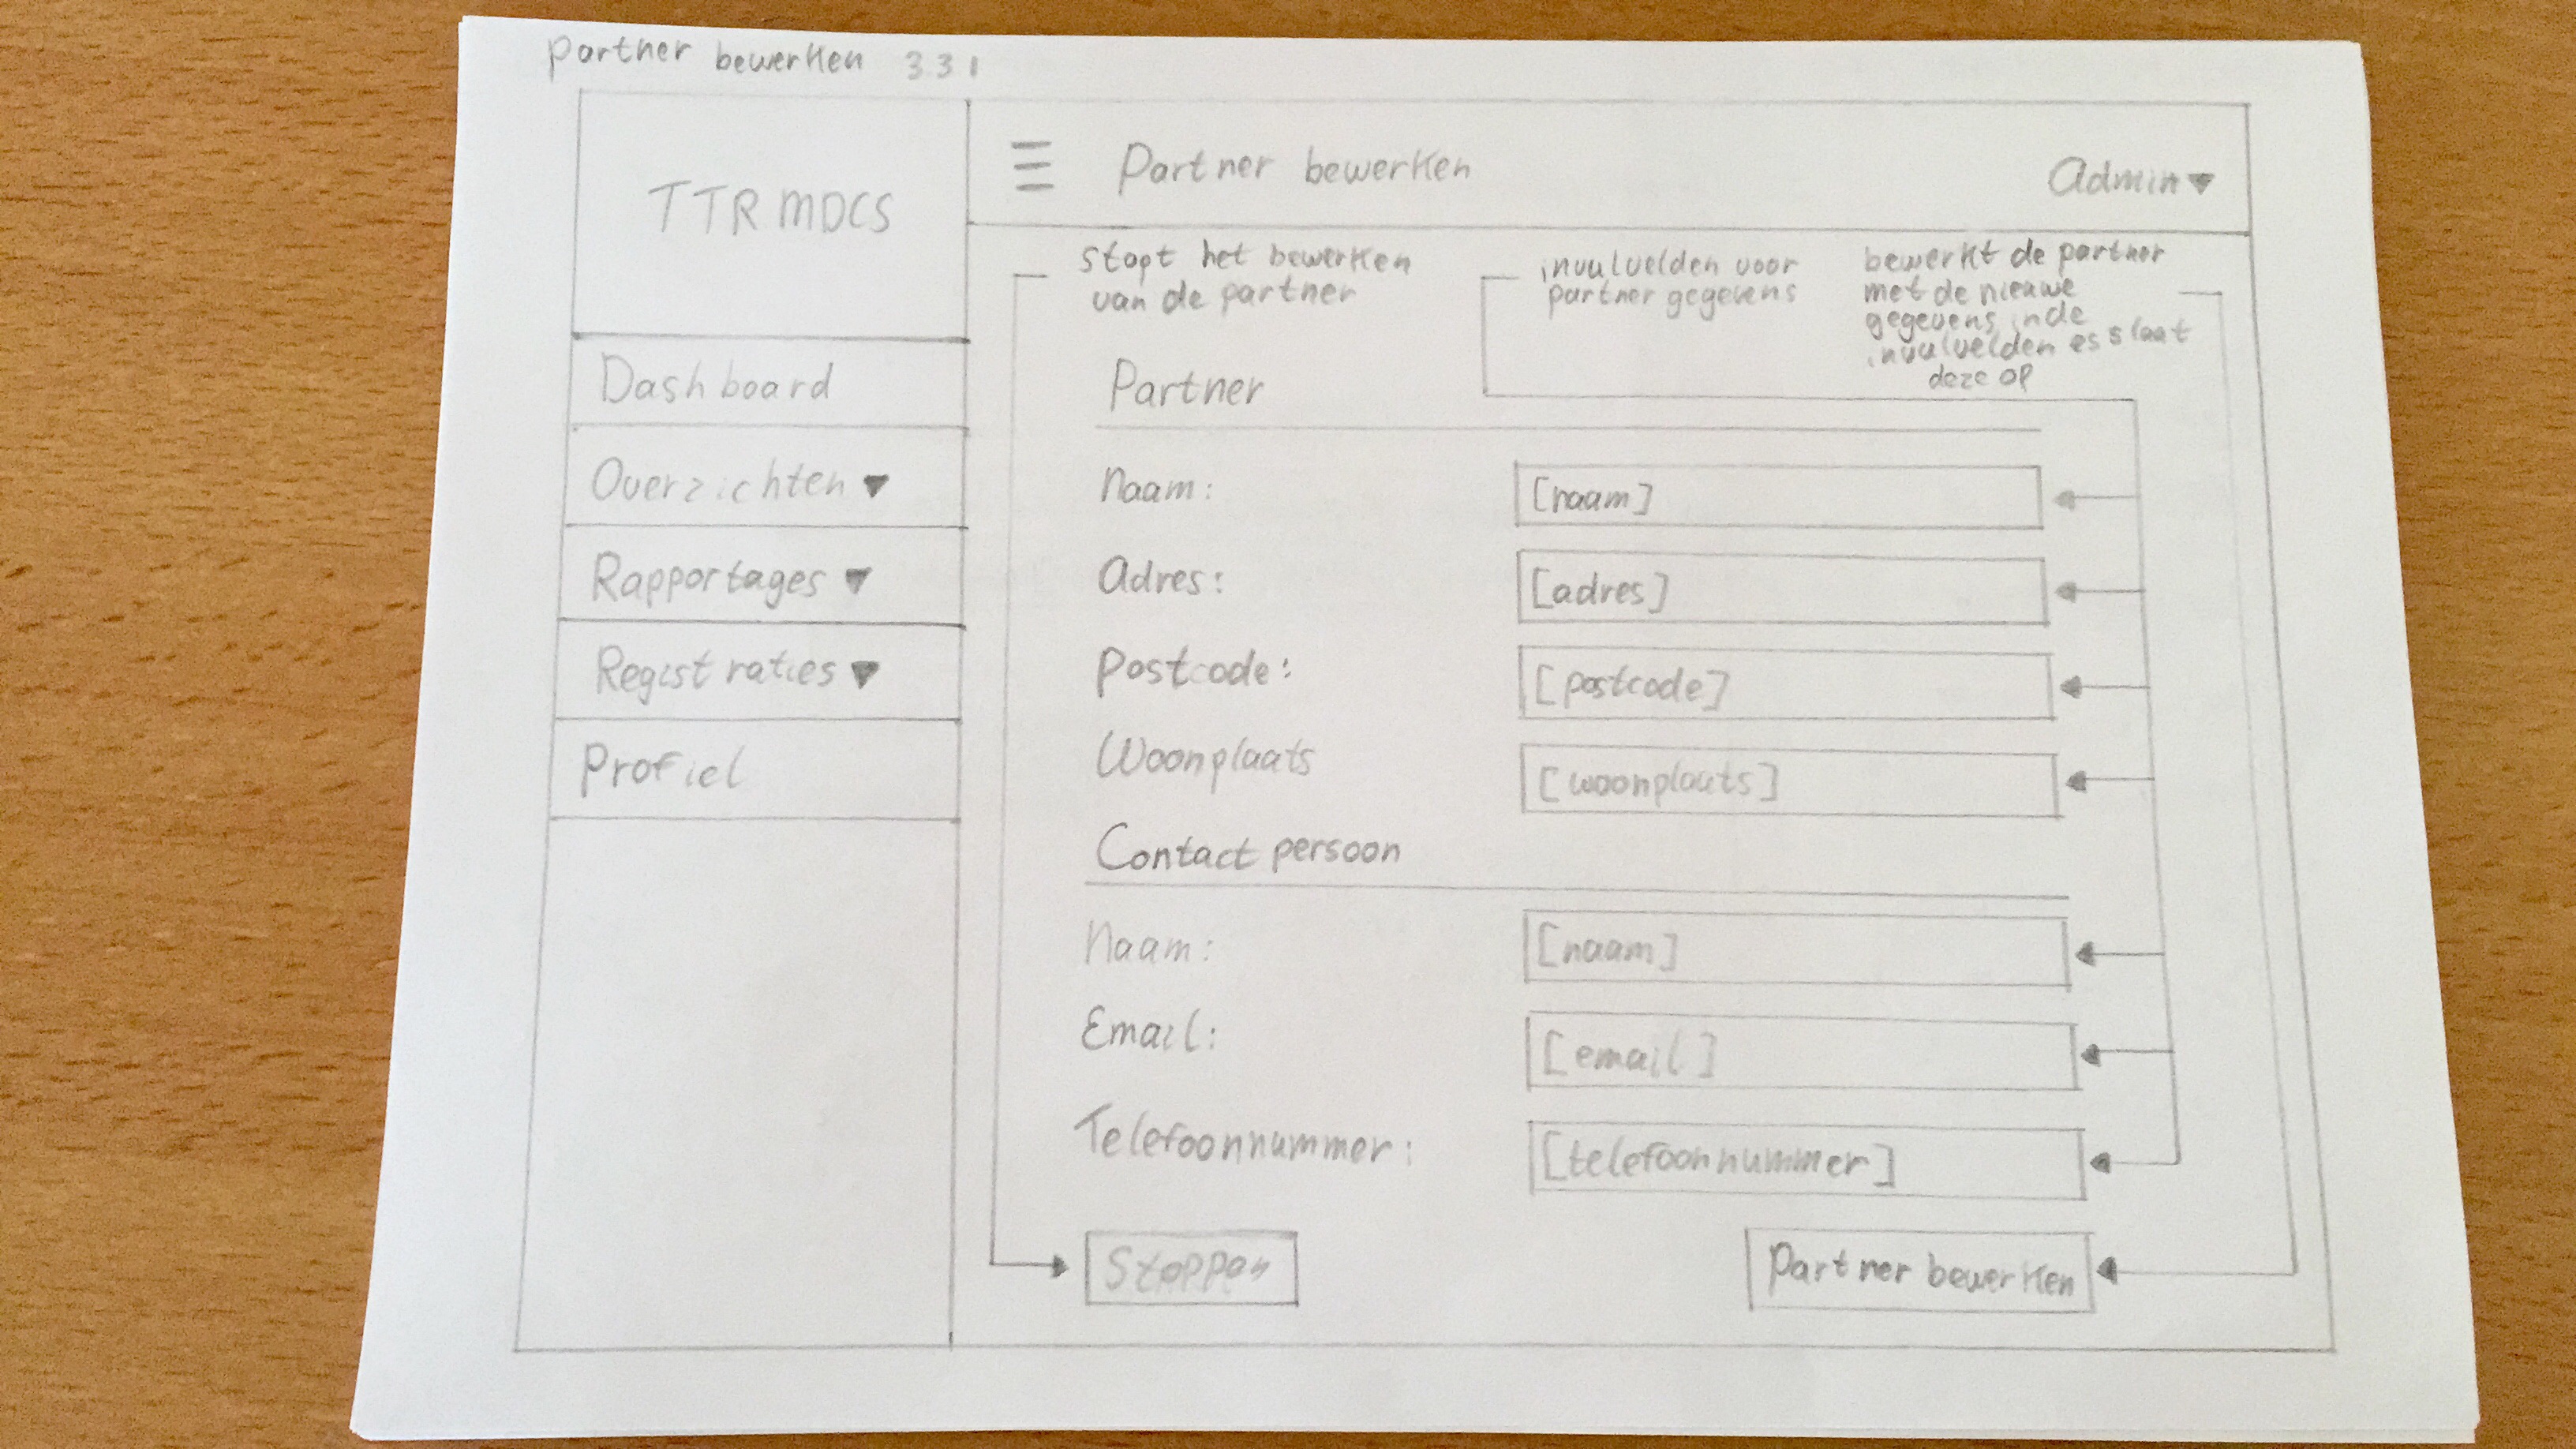 Partner bewerken 3.3.1
TTR MDCS
Partner bewerken
Admin
Dashboard
Overzichten
Rapportages
Registraties
Profiel
Stopt het bewerken
van de partner
invulvelden voor
partner gegevens
bewerkt de partner
met de nieuwe
gegevens in de
invulvelden es slaat
deze op
Partner
Naam:
[naam]
Adres:
[adres]
Postcode:
[postcode]
Woonplaats
[woonplaats]
Contact persoon
Naam:
[naam]
Email:
[email]
Telefoonnummer:
[telefoonnummer]
Stoppen
Partner bewerken